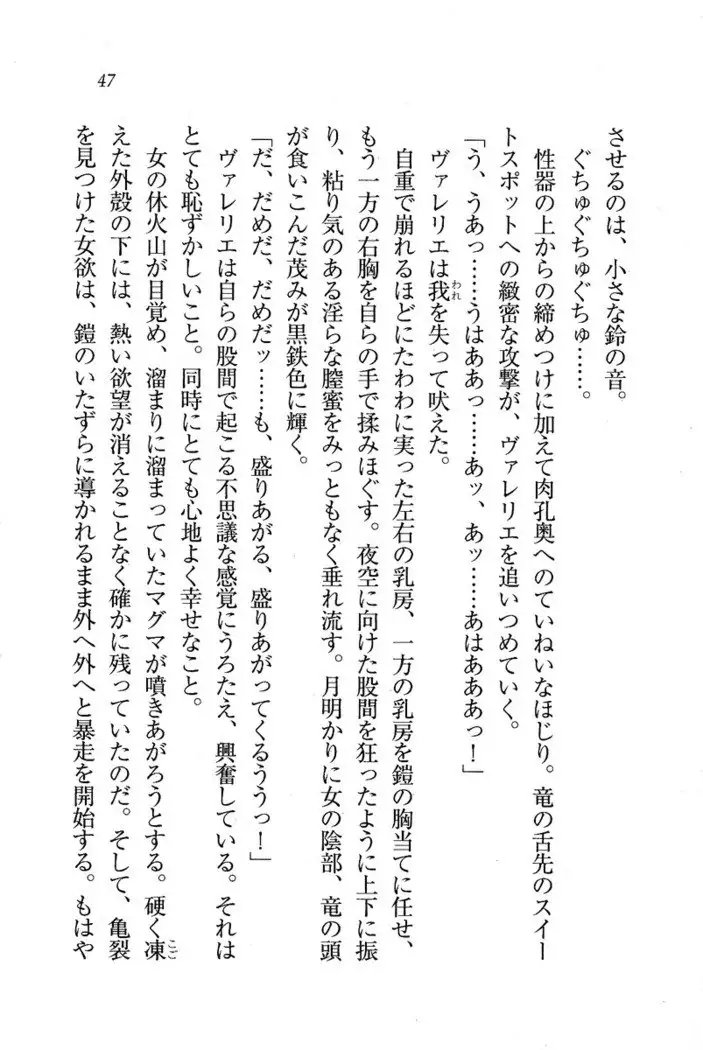 47
させるのは、小さな鈴の音。
ぐちゅぐちゅぐちゅ……。
性器の上からの締めつけに加えて肉孔奥へのていねいなほじり。竜の舌先のスイー
トスポットへの緻密な攻撃が、ヴァレリエを追いつめていく。
「う、うあっ……うはああっ……あッ、あッ……あはあああっ！」
ヴァレリエは我を失って吠えた。
われ
自重で崩れるほどにたわわに実った左右の乳房、一方の乳房を鎧の胸当てに任せ、
もう一方の右胸を自らの手で揉みほぐす。夜空に向けた股間を狂ったように上下に振
り、粘り気のある淫らな膣蜜をみっともなく垂れ流す。月明かりに女の陰部、竜の頭
が食いこんだ茂みが黒鉄色に輝く。
「だ、だめだ、だめだッ……も、盛りあがる、盛りあがってくるううっ！」
ヴァレリエは自らの股間で起こる不思議な感覚にうろたえ、興奮している。それは
とても恥ずかしいこと。同時にとても心地よく幸せなこと。
女の休火山が目覚め、溜まりに溜まっていたマグマが噴きあがろうとする。硬く凍
こご
えた外殻の下には、熱い欲望が消えることなく確かに残っていたのだ。そして、亀裂
を見つけた女欲は、鎧のいたずらに導かれるまま外へ外へと暴走を開始する。もはや